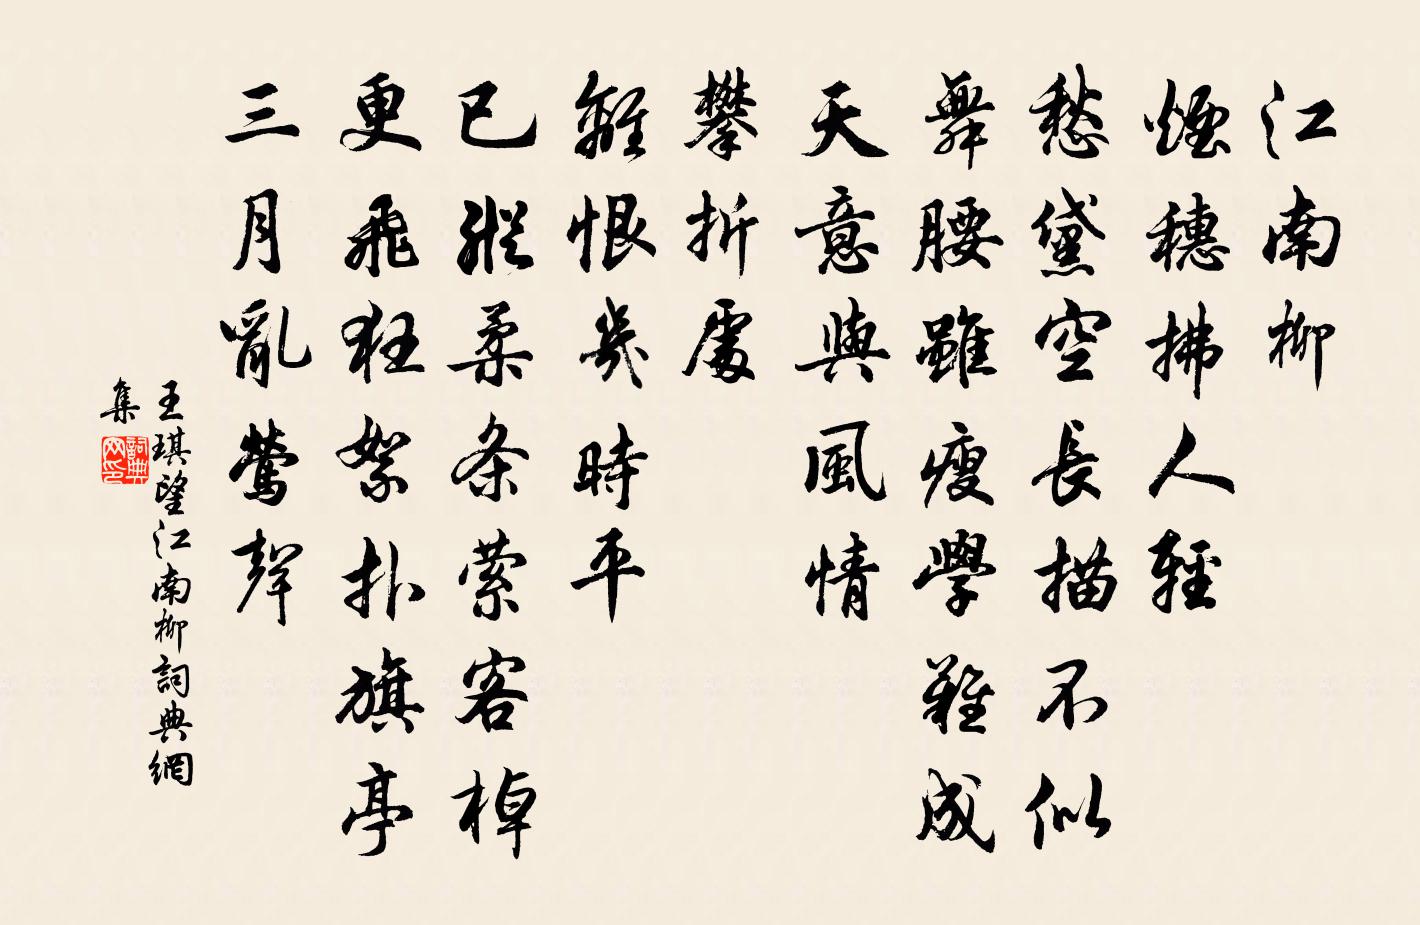 江南柳
煙穗拂人輕
愁黛空長描不似
舞腰雖瘦學難成
天意與風情
攀折處
離恨幾時平
已縱柔条縈客棹
更飛狂絮扑旗亭
三月亂鶯聲
王琪望江南柳詞典網
集
詞典
网印